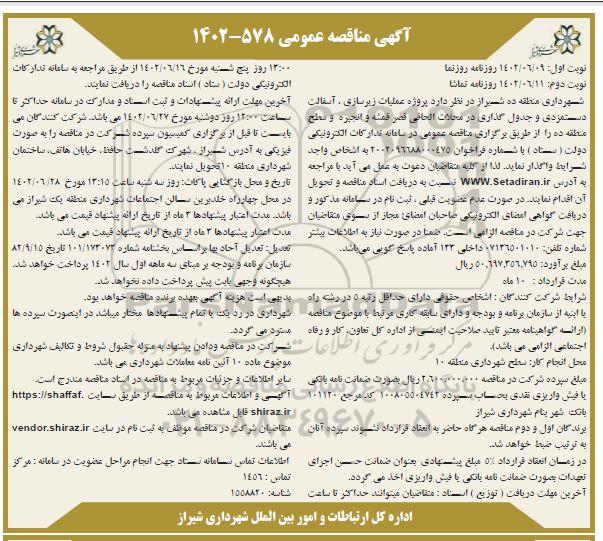 آگهی مناقصه عمومی ۵۷۸-۱۴۰۲
نوبت اول: ۱۴۰۲/۰۶/۰۹ روزنامه روزنما
نوبت دوم: ۱۴۰۲/۰۶/۱۱ روزنامه تماشا
شهرداری منطقه ده شیراز در نظر دارد پروژه عملیات زیرسازی ، آسفالت
دستمزدی و جدول گذاری در محلات الحاقی قصر قمشه و انجیره و سطح
منطقه ده را از طریق برگزاری مناقصه عمومی در سامانه تدارکات الکترونیکی
دولت ( ستاد ) با شماره فراخوان ۲۰۰۲۰۹۶۶۸۸۰۰۰۴۷۵ به اشخاص واجد
شرایط واگذار نماید. لذا از کلیه متقاضیان دعوت به عمل می آید با مراجعه
به آدرس WWW.Setadiran.ir نسبت به دریافت اسناد مناقصه و تحویل
آن اقدام نمایند. در صورت عدم عضویت قبلی ، ثبت نام در سامانه مذکور و
دریافت گواهی امضای الکترونیکی صاحبان امضای مجاز از سوی متقاضیان
جهت شرکت در مناقصه الزامی است. ضمنا در صورت نیاز به اطلاعات بیشتر
شماره تلفن: ۰۷۱۳۶۵۰۱۰۱۰ داخلی ۱۳۳ آماده پاسخ گویی می‌باشد.
مبلغ برآورد: ۵۰,۶۹۷,۳۵۶,۷۹۵ ریال
مدت قرارداد : ۱۰ ماه
شرایط شرکت کنندگان : اشخاص حقوقی دارای حداقل رتبه ۵ در رشته راه
یا ابنیه از سازمان برنامه و بودجه و دارای سابقه کاری مرتبط با موضوع مناقصه
(ارائه گواهینامه معتبر تایید صلاحیت ایمنی از اداره کل تعاون، کار و رفاه
اجتماعی الزامی می باشد).
محل انجام کار: سطح شهرداری منطقه ۱۰
مبلغ سپرده شرکت در مناقصه ۲.۶۰۰.۰۰۰.۰۰۰ ریال بصورت ضمانت نامه بانکی
یا فیش واریزی نقدی بحساب سپرده ۱۰۰۸۰۵۵۰۴۷۴۲ کد مرجع ۱۰۱۱۲۰
بانک شهر بنام شهرداری شیراز
برندگان اول و دوم مناقصه هرگاه حاضر به انعقاد قرارداد نشوند سپرده آنان
به ترتیب ضبط خواهد شد.
در زمان انعقاد قرارداد ۵% مبلغ پیشنهادی بعنوان ضمانت حسن اجرای
تعهدات بصورت ضمانت نامه بانکی یا فیش واریزی اخذ می گردد.
آخرین مهلت دریافت ( توزیع ) اسناد : متقاضیان میتوانند حداکثر تا ساعت
۱۳:۰۰ روز پنج شنبه مورخ ۱۴۰۲/۰۶/۱۶ از طریق مراجعه به سامانه تدارکات
الکترونیکی دولت ( ستاد ) اسناد مناقصه را دریافت نمایند.
آخرین مهلت ارائه پیشنهادات و ثبت اسناد و مدارک در سامانه حداکثر تا
ساعت ۱۲:۰۰ روز دوشنبه مورخ ۱۴۰۲/۰۶/۲۷ می باشد. شرکت کنندگان می
بایست تا قبل از برگزاری کمیسیون سپرده شرکت در مناقصه را به صورت
فیزیکی به آدرس شیراز ، شهرک گلدشت حافظ، خیابان هاتف، ساختمان
شهرداری منطقه ۱۰ تحویل نمایند.
تاریخ و محل بازگشایی پاکات: روز سه شنبه ساعت ۱۳:۱۵ مورخ ۱۴۰۲/۰۶/۲۸
در محل چهارراه خلدبرین سالن اجتماعات شهرداری منطقه یک شیراز می
باشد. مدت اعتبار پیشنهادها ۳ ماه از تاریخ ارائه پیشنهاد قیمت می باشد.
مدت اعتبار پیشنهادها ۳ ماه از تاریخ ارائه پیشنهاد قیمت می باشد.
تعدیل: تعدیل آحاد بها براساس بخشنامه شماره ۱۰۱/۱۷۳۰۷۳ تاریخ ۸۲/۹/۱۵
سازمان برنامه و بودجه بر مبنای سه ماهه اول سال ۱۴۰۲ پرداخت خواهد شد.
هیچگونه وجهی بابت پیش پرداخت داده نخواهد شد.
بدیهی است هزینه آگهی بعهده برنده مناقصه خواهد بود.
شهرداری در رد یک یا تمام پیشنهادها مختار میباشد در اینصورت سپرده ها
مسترد می گردد.
شرکت در مناقصه ودادن پیشنهاد به منزله مقبول شروط و تکالیف شهرداری
موضوع ماده ۱۰ آئین نامه معاملات شهرداری می باشد.
سایر اطلاعات و جزئیات مربوط به مناقصه در اسناد مناقصه مندرج است.
آگهی و اطلاعات مربوط به مناقصه از طریق سایت https://shaffaf.
shiraz.ir قابل مشاهده می باشد.
متقاضیان شرکت در مناقصه موظف به ثبت نام در سایت vendor.shiraz.ir
می باشند.
اطلاعات تماس سامانه ستاد جهت انجام مراحل عضویت در سامانه : مرکز
تماس : ۱۴۵۶
شناسه: ۱۵۵۸۸۲۰
اداره کل ارتباطات و امور بین الملل شهرداری شیراز